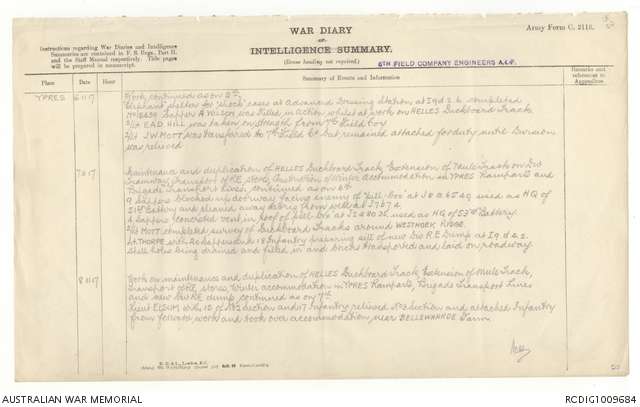 WAR DIARY
or
INTELLIGENCE SUMMARY.
(Erase heading not required.)
Army Form C. 2118.
Instructions regarding War Diaries and Intelligence
Summaries are contained in F. S. Regs., Part II.
and the Staff Manual respectively. Title pages
will be prepared in manuscript.
6TH FIELD COMPANY ENGINEERS A.I.F.
Place Date Hour Summary of Events and Information Remarks and
references to
Appendices
YPRES 6 11 17 Work, continued as on 5th.
Elephant shelter for 'shock' cases at Advanced Dressing Station at I.9.d.2.6. completed
Sapper A. WILSON was killed in action whilst at work on HELLES Duckboard Track
2/Lt E.A.D. HILL was taken on strength from 7th Field Coy
2/Lt J.W. MOTT was transfered to 7th Field Co but remained attached for duty until Division
was relieved
7 11 17 Maintenance and duplication of HELLES Duckboard Track, Extension of Mule Track on Div
Tramway, Transport of R.E. stores, Construction of Winter Accommodation in YPRES Ramparts and
Brigade Transport Lines, continued as on 6th.
9 Sappers blocked up doorway facing enemy of 'Pill-box' at J.8.a.65.40 used as HQ of
51st Battery and cleared away debris from well at J.7.b.7.2.
4 Sappers concreted vent in roof of 'pill-box' at used as HQ of 53rd Battery.
2/Lt MOTT completed survey of Duckboard Tracks around WESTHOEK RIDGE.
Lt THORPE with 20 sappers & 18 Infantry preparing site of new Div R.E. Dump at I.9.d.2.
Shell holes being drained and filled in and bricks transported and laid on roadway
8 11 17 Work on maintenance and duplication of HELLES Duckboard Track, Extension of Mule Track,
Transport of R.E. stores, Winter accommodation in YPRES Ramparts, Brigade Transport Lines
and new Div R.E. dump, continued as on 7th.
Lieut ELSUM with 15 of No 2 section and 17 Infantry relieved section and attached Infantry
from forward work and took over accommodation, near BELLEWAARDE Farm.
AUSTRALIAN WAR MEMORIAL
RCDIG1009684